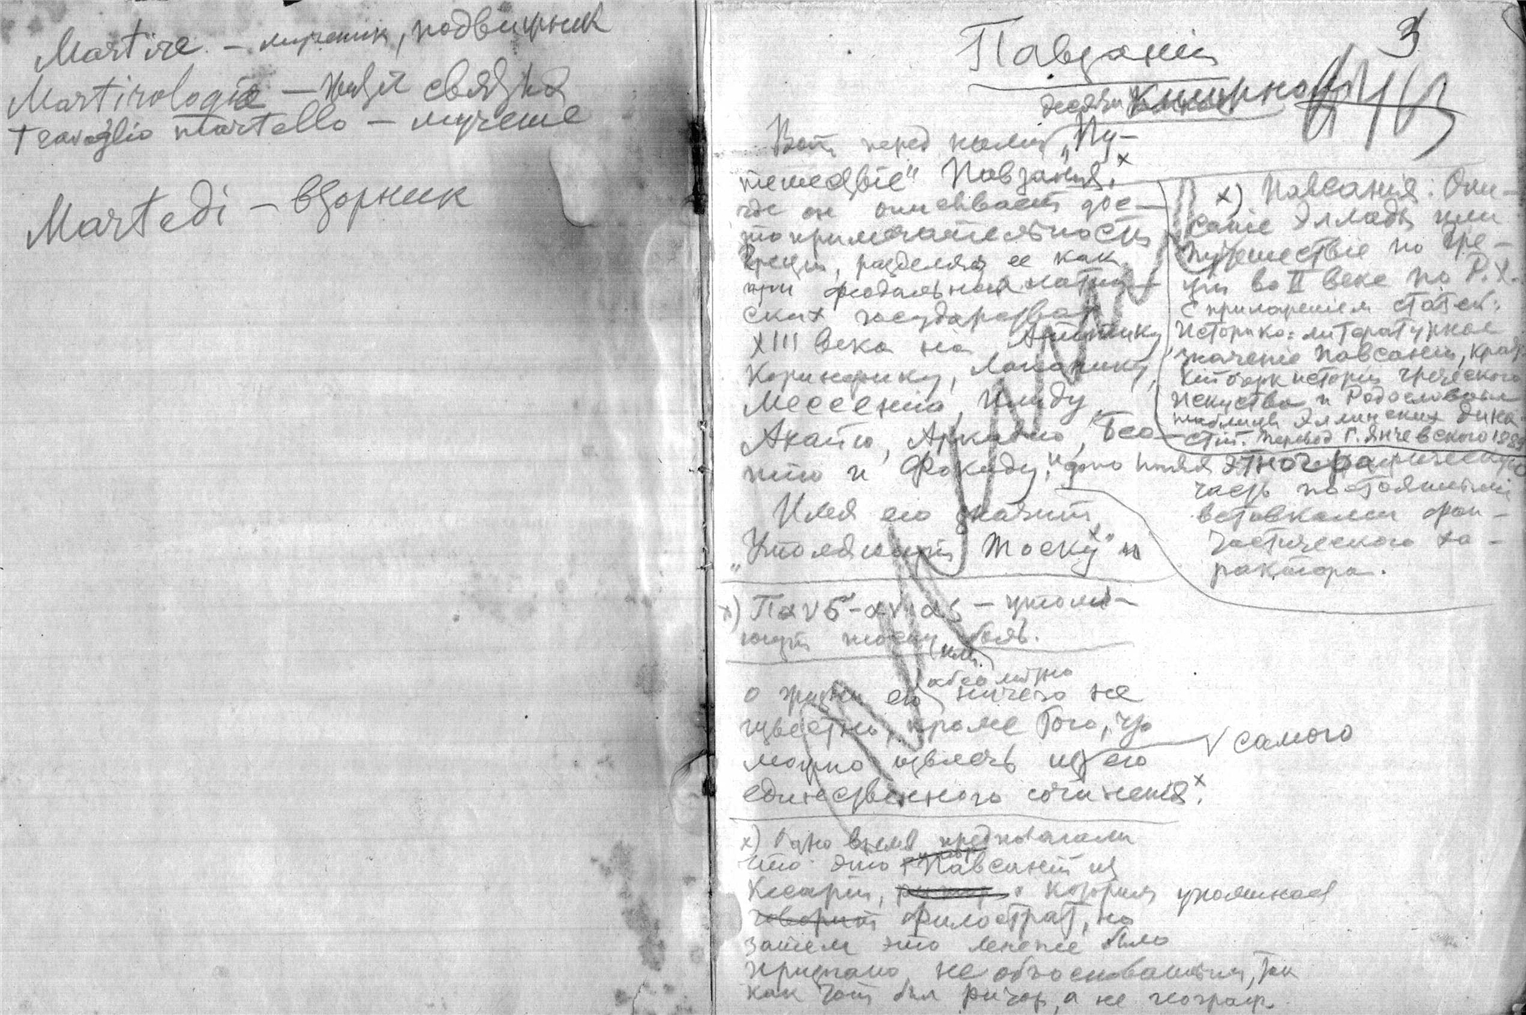 Martire – мученик, подвижник
Martirologio – жизн святых
Travaglio martello – мучение
Martedi – вторник
3
Павзаній
Вот перед нами „Пу-
тешествіе" Павзанія,х
где он описывает дос-
топримечательности
Греціи, разделяя ее как
при феодальных
ских государствах
XIII века на Аттику,
Коринфику, Лаконику,
Мессенію, Элиду,
Ахайю, Аркадію, Бео-
тію и Фокиду, дополняя этнографическую
часть постоянными
вставками фан-
тастического ха-
рактера.
х) Павсанія: Опи-
саніе Эллады или
Путешествіе по Гре-
ціи во II веке по Р. Х.
с приложеніем статей:
Историко-литературное
значеніе Павсанія, крат-
кій очерк исторіи греческого
искусства и Родословныя
таблицы Эллинских дина-
стій. Перевод Г. Янчевского 1889
Имя его значит
„Утоляющій Тоску"х и
х) Παυσ-ανιας – утоля-
ющій тоску, боль.
или
абсолютно
о жизни его ничего не
известно, кроме того, что
можно извлечь из его
самого
единственного сочиненія.х
х) Одно время предполагали
что это Павсаній из
Кесаріи, о котором упоминает
говорит Филострат, но
затем это мненіе было
признано необоснованным, так
как тот был ритор, а не географ.